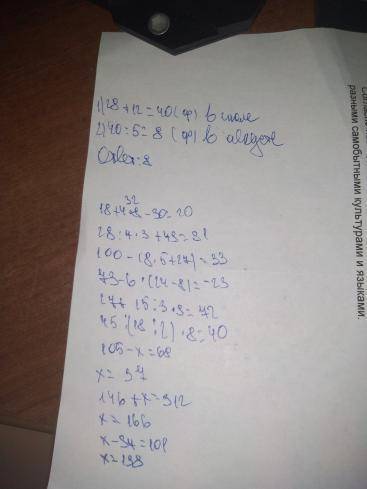 1) 28+12=40(ф) в школе
2) 40:5=8 (ф) в
Ответ: 8
32
18+4·8-30=20
28:4·3+49=81
100-(8·5+27)=33
73-6·(24-8)=-23
27+15:3·9=72
45:(18:2)·8=40
105-x=68
x=37
146+x=312
x=166
x-94=101
x=198
разными самобытными культурами и языками.